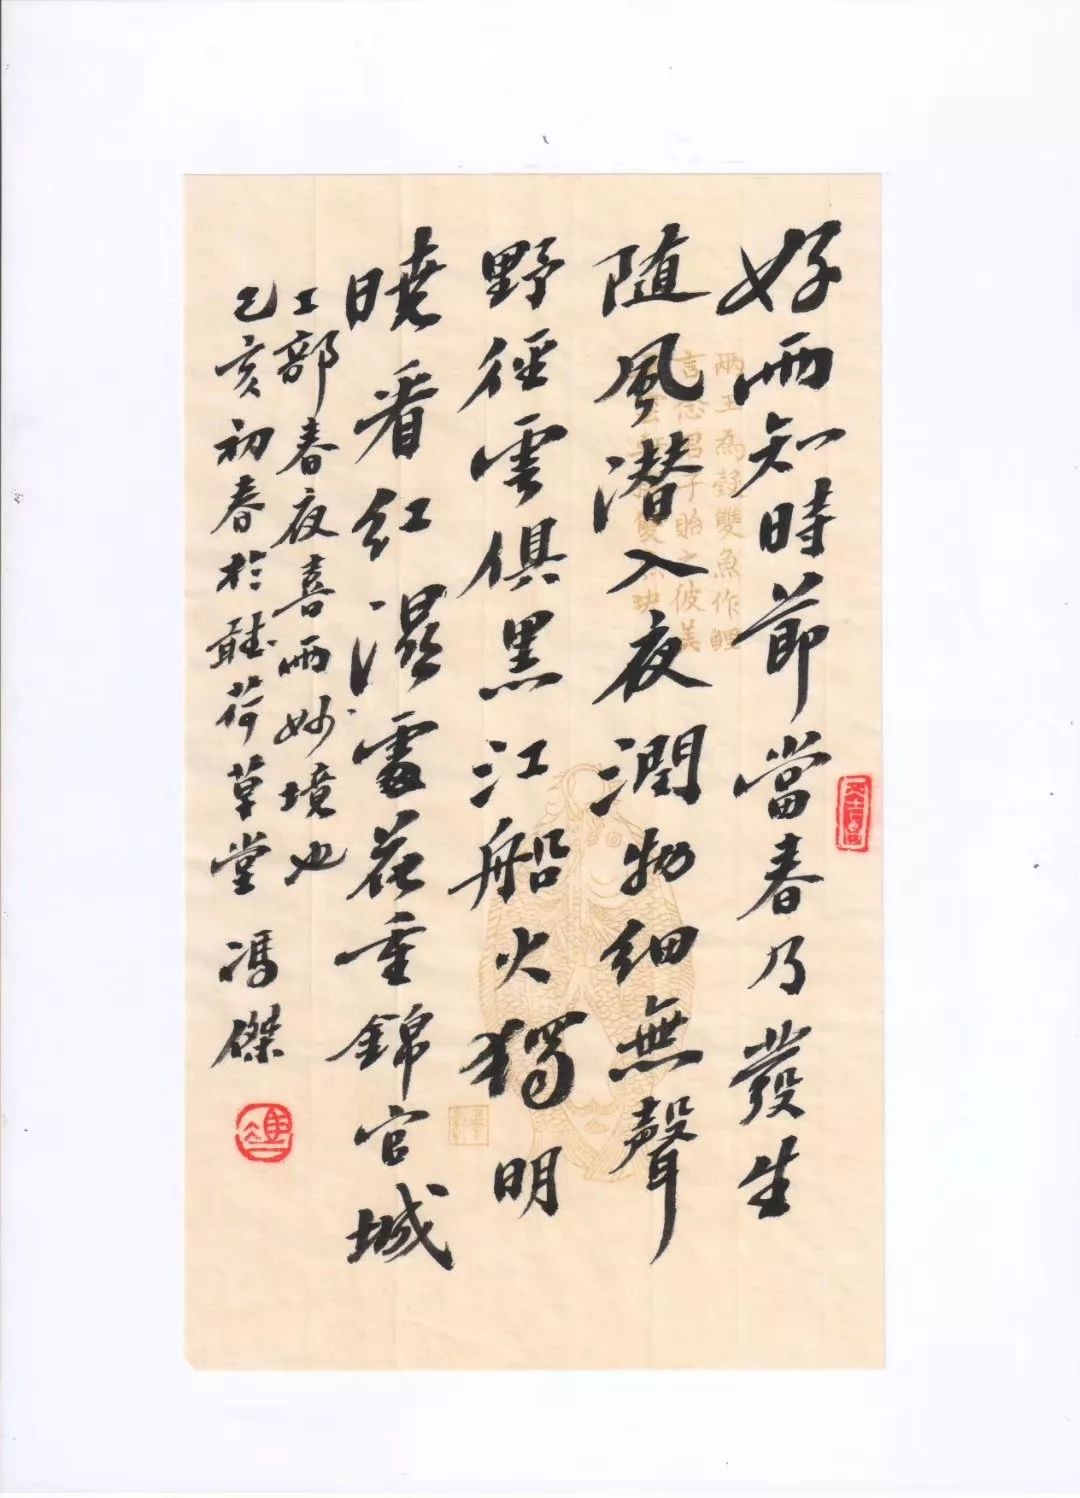 好雨知時節當春乃發生
随風潜入夜潤物細無聲
野徑雲俱黑江船火獨明
曉看紅濕處花重錦官城
工部春夜喜雨妙境也
己亥初春於聽荷草堂 馮傑
兩玉為瑴雙魚作鯉
言念君子貽之彼美